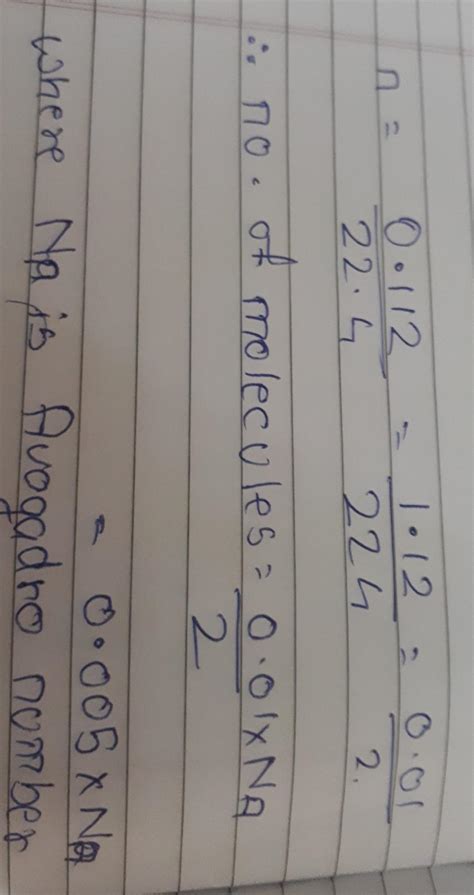 n = 0.112/22.4 = 1.12/224 = 0.01/2.
∴ no. of molecules = 0.01 x NA/2
= 0.005 x NA
where NA is Avogadro number